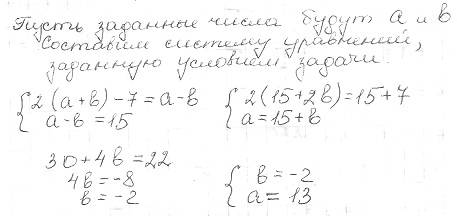 Пусть заданные числа будут a и b
Составим систему уравнений,
заданную условием задачи.
{2(a+b)-7=a-b {2(15+2b)=15+7
a-b=15 a=15+b
30+4b=22
4b=-8 {b=-2
b=-2 a=13